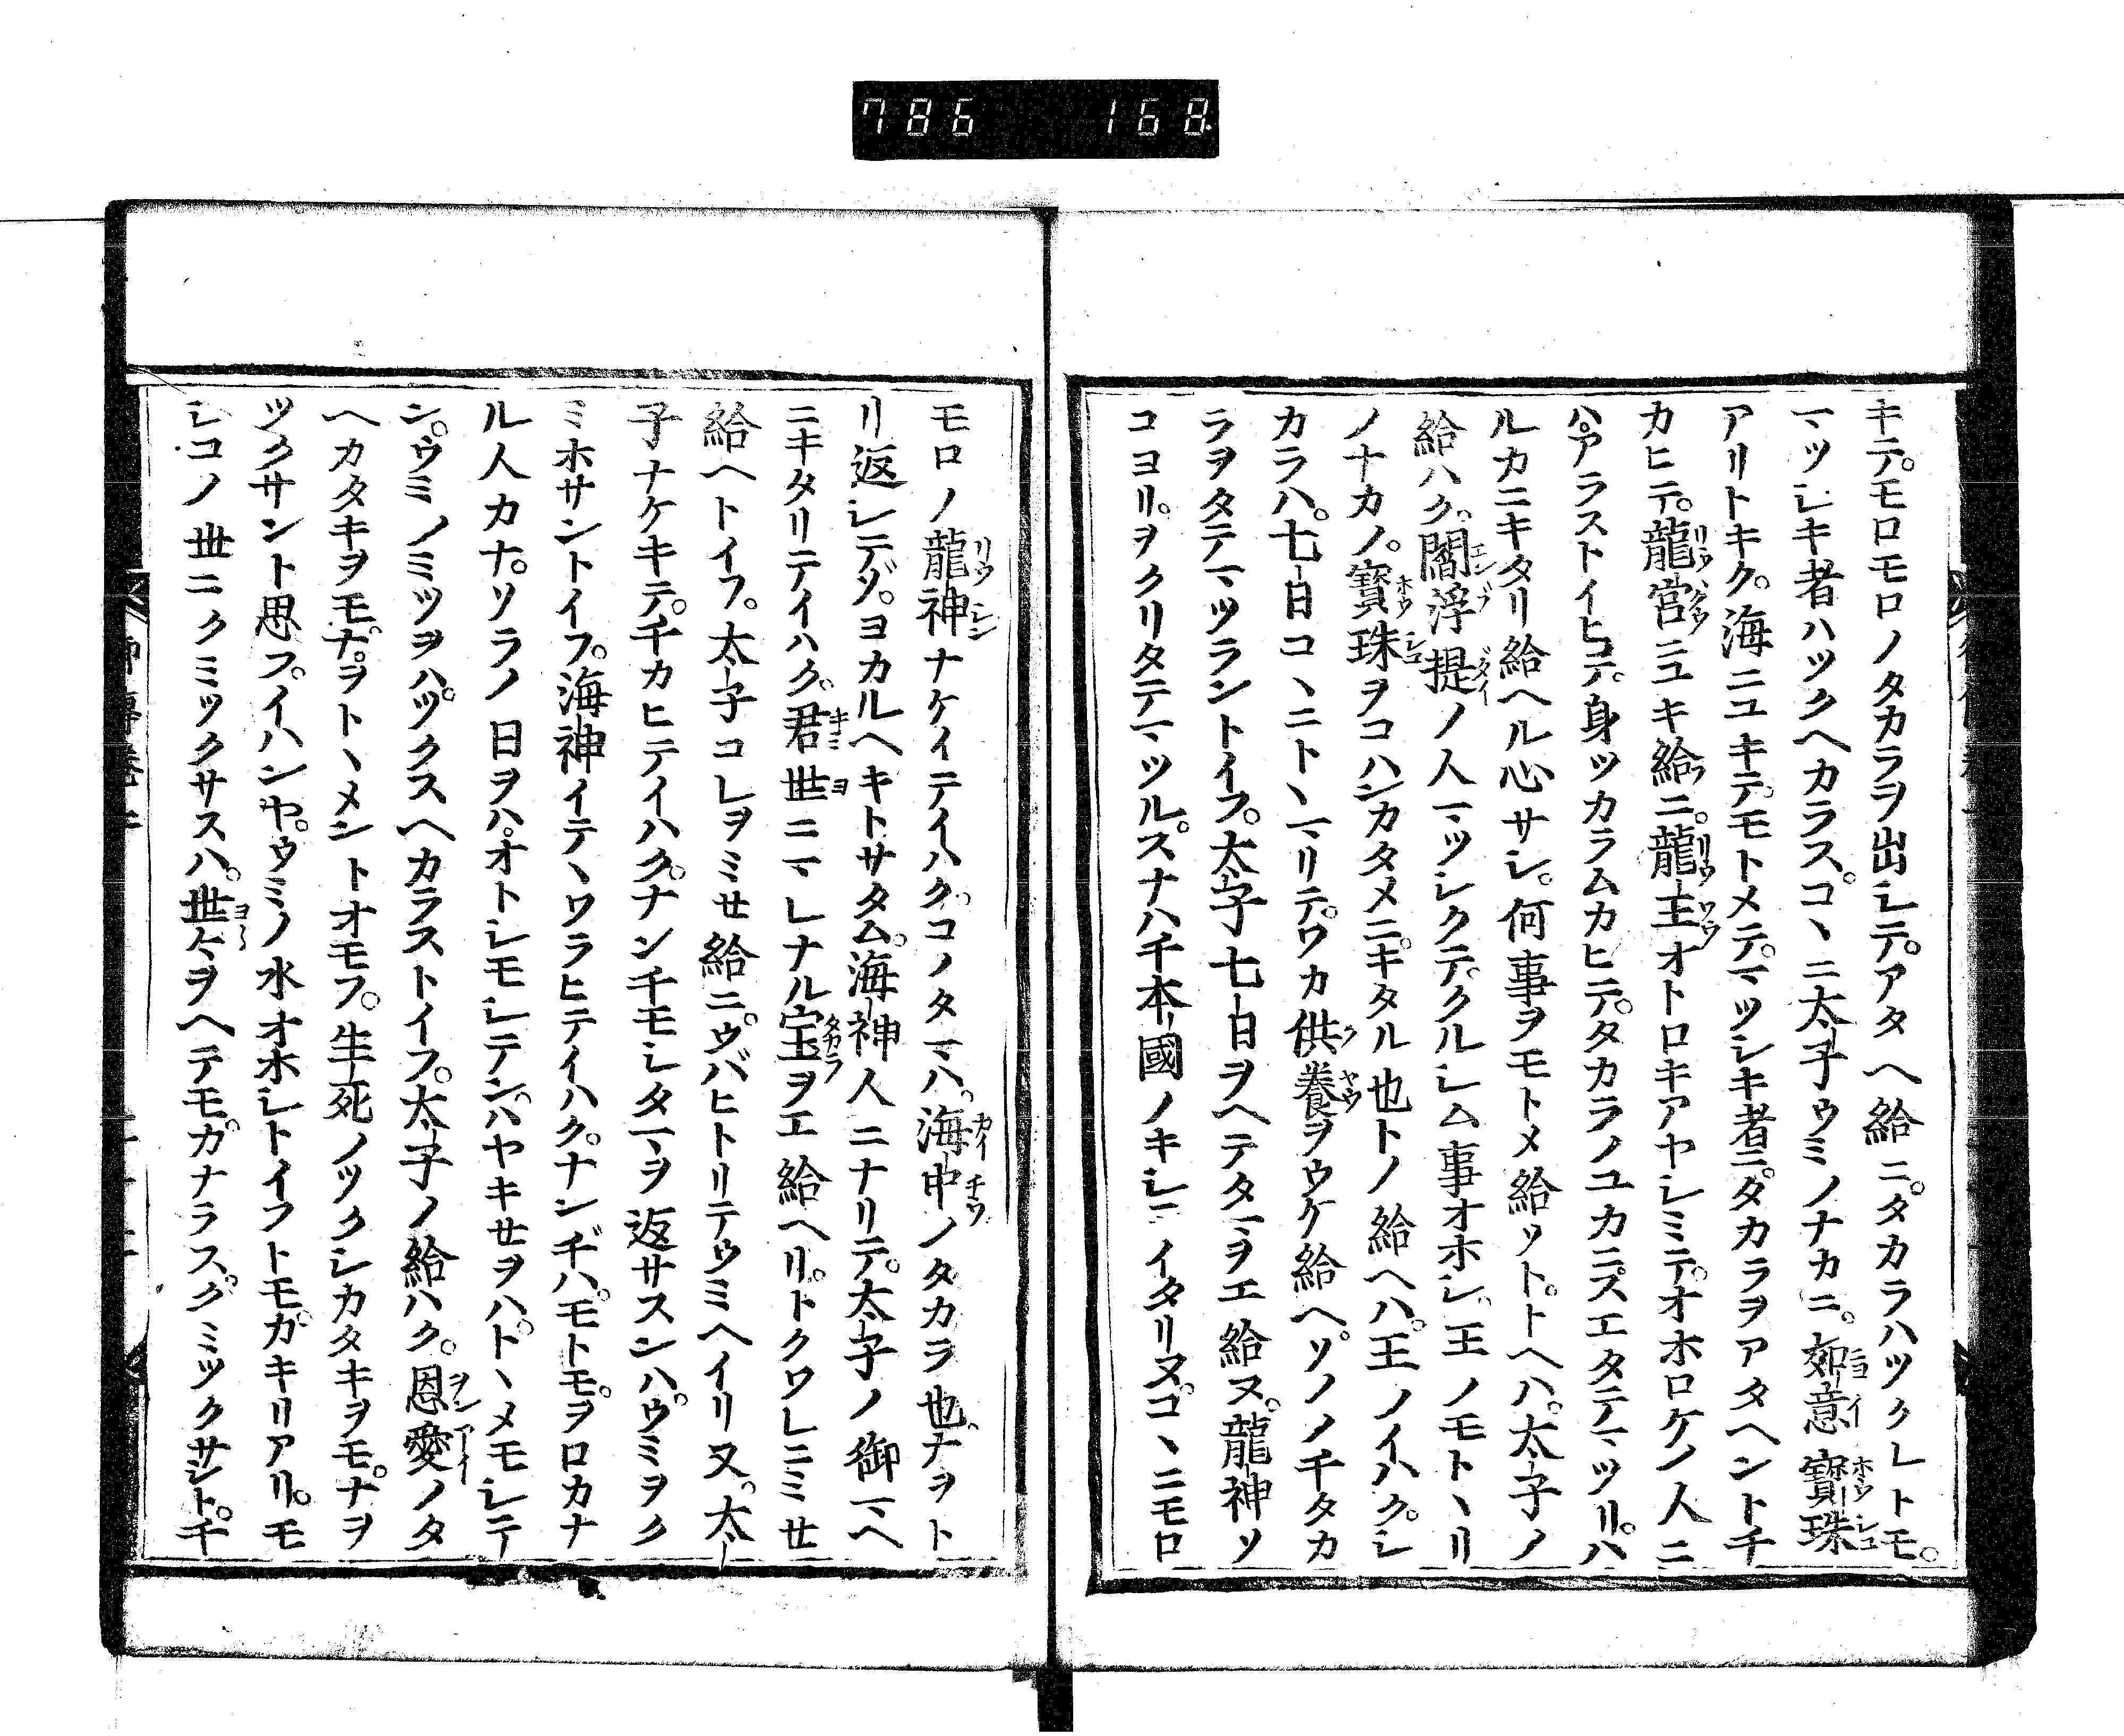 786 168
キテ。モロモロノタカラヲ出シテ。アタヘ給ニ。タカラハツクレトモ。
マツシキ者ハツクヘカラス。コヽニ太子ウミノナカニ。如意寶珠
アリトキク。海ニユキテモトメテ。マツシキ者ニ。タカラヲアタヘントチ
カヒテ。龍宮ニユキ給ニ。龍王オトロキアヤシミテ。オホロケノ人ニ
ハ。アラストイヒテ。身ツカラムカヒテ。タカラノユカニスエタテマツリ。ハ
ルカニキタリ給ヘル心サシ。何事ヲモトメ給ソト。トヘハ。太子ノ
給ハク。閻浮提ノ人マツシクテ。クルシム事オホシ。王ノモトヽリ
ノナカノ。寶珠ヲコハンカタメニ。キタル也トノ給ヘハ。王ノイハク。シ
カラハ。七日コヽニトヽマリテ。ワカ供養ヲウケ給ヘ。ソノノチタカ
ラヲタテマツラントイフ。太子七日ヲヘテタマヲエ給ヌ。龍神ソ
コヨリ。ヲクリタテマツル。スナハチ本國ノキシニイタリヌ。コヽニモロ
モロノ龍神ナケイテイハク。コノタマハ。海中ノタカラ也。ナヲト
リ返シテゾ。ヨカルヘキトサタム。海神人ニナリテ。太子ノ御マヘ
ニキタリテイハク。君世ニマレナル宝ヲエ給ヘリ。トクワレニミセ
給ヘトイフ。太子コレヲミセ給ニ。ウバヒトリテウミヘイリヌ。太
子ナケキテ。チカヒテイハク。ナンチモシタマヲ返サスンハ。ウミヲク
ミホサントイフ。海神イテヽワラヒテイハク。ナンヂハ。モトモ。ヲロカナ
ル人カナ。ソラノ日ヲハ。オトシモシテン。ハヤキセヲハ。トヽメモシテ
ン。ウミノミツヲハ。ツクスヘカラストイフ。太子ノ給ハク。恩愛ノタ
ヘカタキヲモ。ナヲトヽメントオモフ。生死ノツクシカタキヲモ。ナヲ
ツクサント思フ。イハンヤ。ウミノ水オホシトイフトモ。カキリアリ。モ
シコノ世ニクミツクサスハ。世々ヲヘテモ。カナラス。クミツクサント。チ